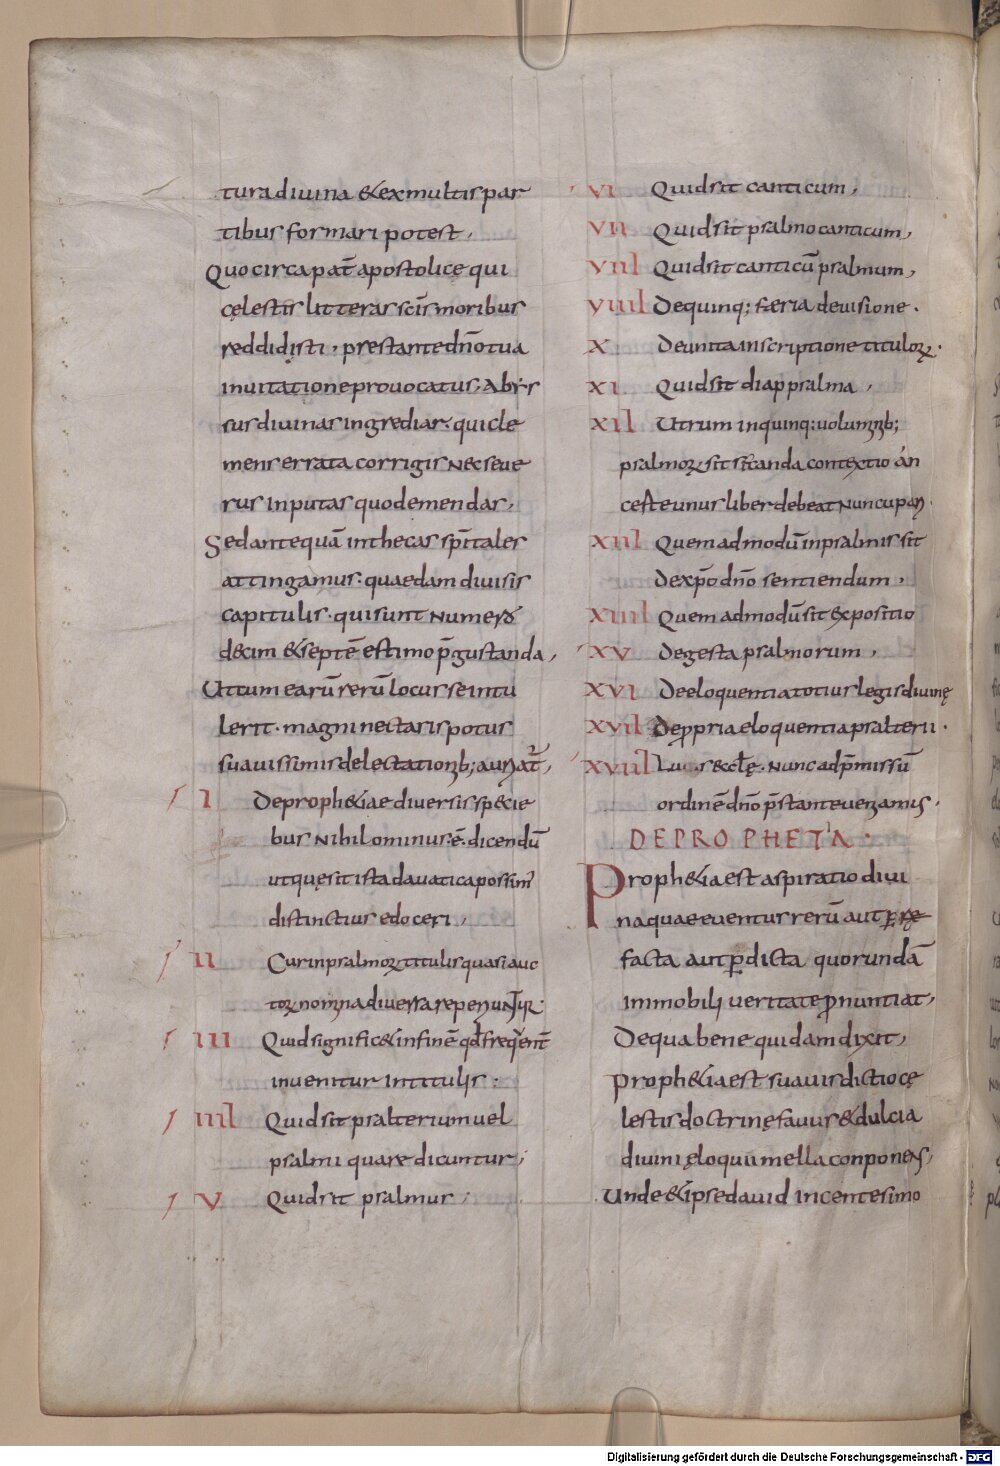 tura diuina & ex multis par
tibus formari potest,
Quocirca pat̄ apostolicę qui
cęlestis litteras sc̄is moribus
reddidisti, prestante dn̄o tua
inuitatione prouocatus, Abys
sus diuinas ingrediar· qui cle
mens errata corrigis Nec seue
rus Inputas quod emendas,
Sed antequā inthecas spītales
attingamus· quaedam diuisis
capitulis· qui sunt Numero
decim & septē estimo p̄gustanda,
Ut tum earū rerū locus se intu
lerit· magni nectaris potus
suauissimis delectationib;
I De proph&iae diuersis specie
bus Nihilominus ē· dicendū
utquę sit ista dauatica possim'
distinctius edoceri,
II Cur in psalmoꝝ titulis quasi auc
toꝝ nomina diuersa
III Quid signific& in finē qđ freqenť
inuenitur Intitulis:
IIII Quid sit psalterium uel
psalmi quare dicuntur;
V Quid sit psalmus
VI Quid sit canticum,
VII Quid sit psalmo canticum,
VIII Quid sit canticū psalmum,
VIIII De quinq; faeria deuisione·
X De unita inscriptione tituloꝝ·
XI Quid sit diappsalma,
XII Utrum in quinq; uolum̄ib;
psalmoꝝ sit secanda contextio án
certe unus liber debeat Nuncupari·
XIII Quemadmodū in psalmis sit
dexp̄o dn̄o sentiendum,
XIIII Quemadmodū sit expositio
XV De gesta psalmorum,
XVI De eloquentia totius legis diuinę
XVII De ppria eloquentia psalterii·
XVIII Lau s eccłę· Nunc ad p̄missū
ordinē dn̄o p̄stante ueniamus·
DE PROPHETIA·
Proph&ia est aspiratio diui
na quae euentus rerū aut
facta aut p dicta quorundā
immobili ueritate pnuntiat,
De qua bene quidam dixit,
Proph&ia est suauis dictio cę
lestis doctrinę fauus & dulcia
diuini ęloquii mella conponens,
Unde & ipse dauid in centesimo
Digitalisierung gefördert durch die Deutsche Forschungsgemeinschaft - DFG